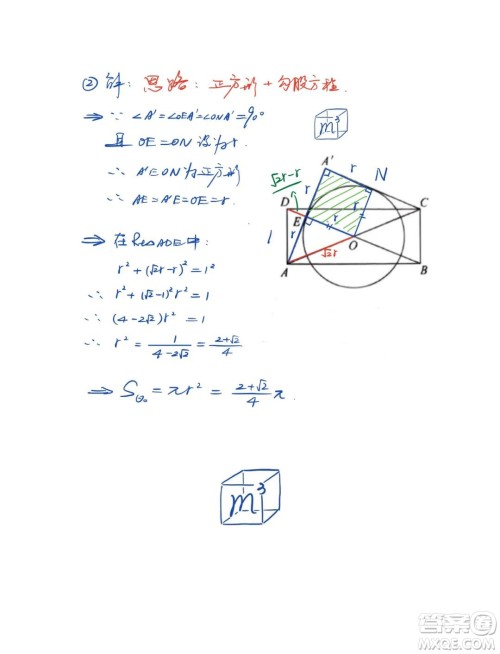 ② 解: 思路: 正方形 + 勾股方程.
⇒ ∵ ∠A' = ∠OEA' = ∠ONA' = 90°
且 OE = ON 设为 r.
∴ A'EON 为正方形
∴ AE = A'E = OE = r.
⇒ 在 Rt△ADE 中:
r² + (√2r - r)² = 1²
∴ r² + (√2 - 1)² r² = 1
∴ (4 - 2√2) r² = 1
∴ r² = 1/(4 - 2√2) = (2 + √2)/4
⇒ S⊙O = πr² = (2 + √2)/4 π.
m³
√2r - r
A'
N
r
r
D
C
E
r
r
O
1
√2r
A
B
m³
答案圈
MXQE.COM